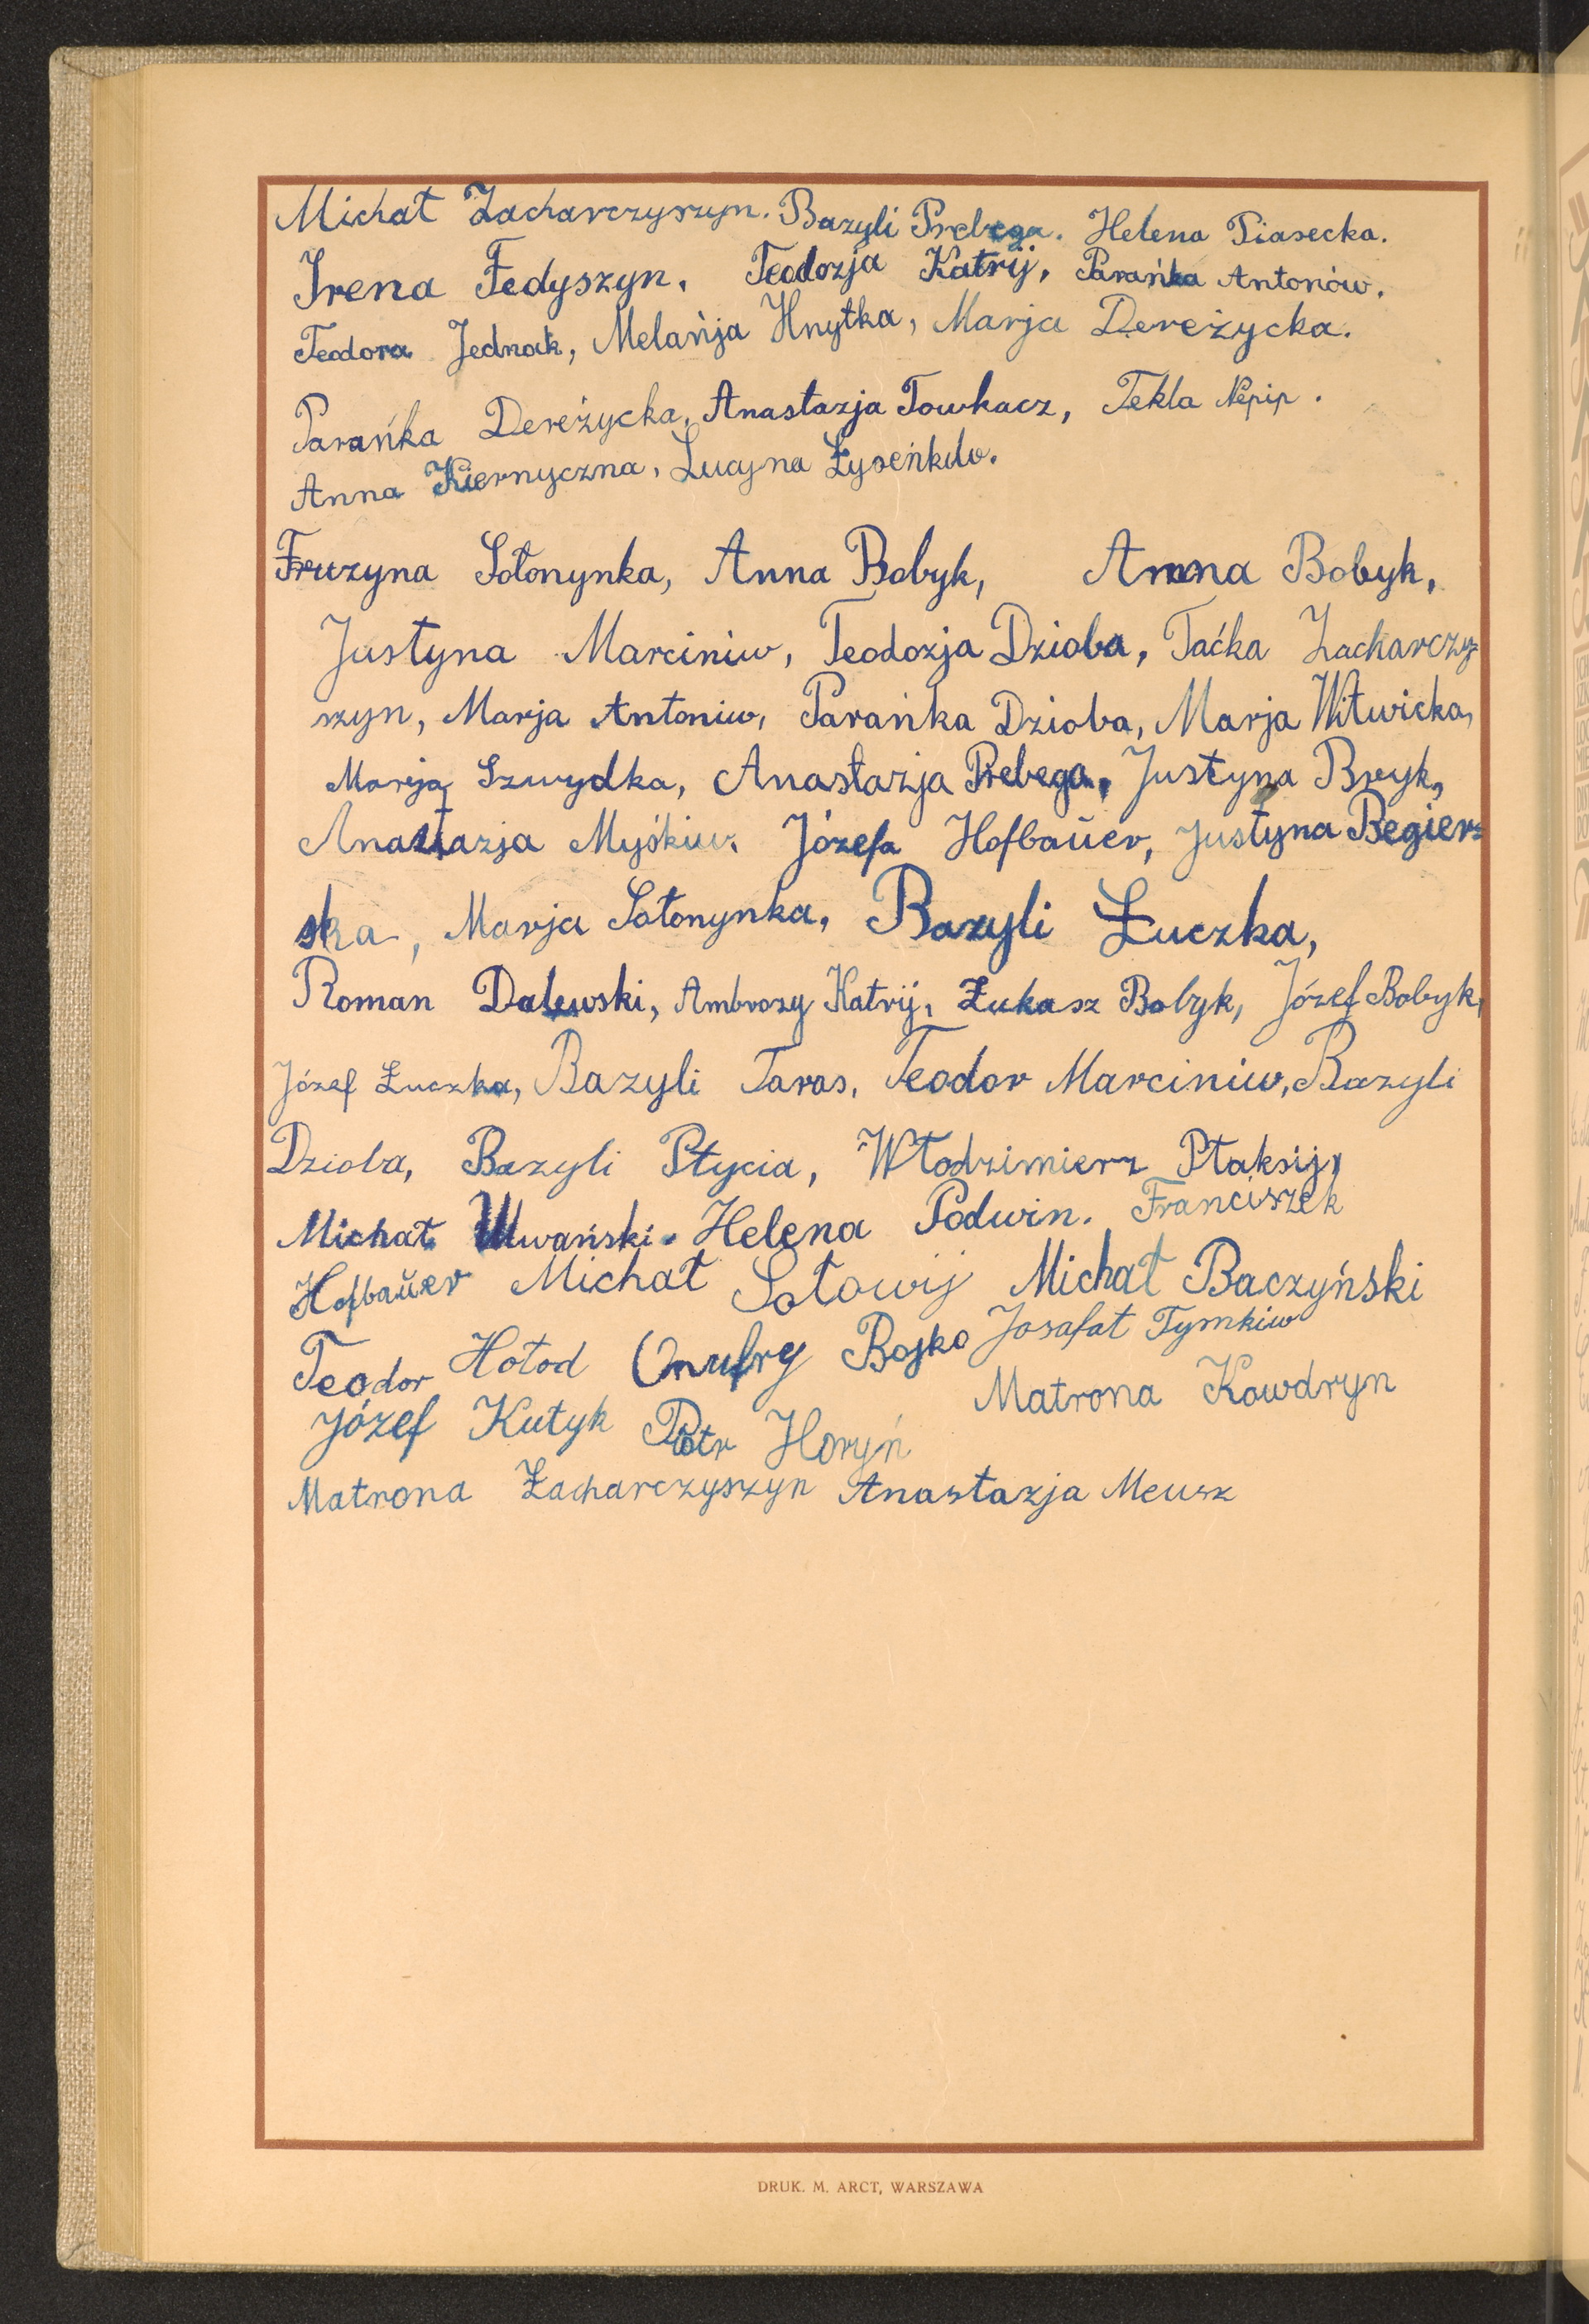 Michał Zacharczyszyn. Bazyli Prebega. Helena Piasecka.
Irena Fedyszyn, Teodozja Katrij, Parańka Antonów.
Teodora Jednak, Melańja Hnytka, Marja Dereżycka.
Parańka Dereżycka, Anastazja Towkacz, Tekla Nepip.
Anna Kiernyczna, Lucyna Łyseńków.
Fruzyna Sołonynka, Anna Bobyk, Anna Bobyk,
Justyna Marciniw, Teodozja Dzioba, Taćka Zacharczy-
szyn, Marja Antoniw, Parańka Dzioba, Marja Witwicka,
Marja Szwydka, Anastazja Prebega, Justyna Bryk,
Anastazja Myśkiw. Józefa Hofbaŭer, Justyna Begier-
ska, Marja Sołonynka, Bazyli Łuczka,
Roman Dalewski, Ambrozy Katrij, Łukasz Bobyk, Józef Bobyk,
Józef Łuczka, Bazyli Taras, Teodor Marciniw, Bazyli
Dzioba, Bazyli Ptycia, Włodzimierz Ptaksij,
Michał Uwański. Helena Podwin. Franciszek
Hofbaŭer Michał Sołowij Michał Baczyński
Teodor Hołod Onufry Bojko Josafat Tymkiw
Józef Kutyk Piotr Horyń Matrona Kowdryn
Matrona Zacharczyszyn Anastazja Meusz
DRUK. M. ARCT, WARSZAWA